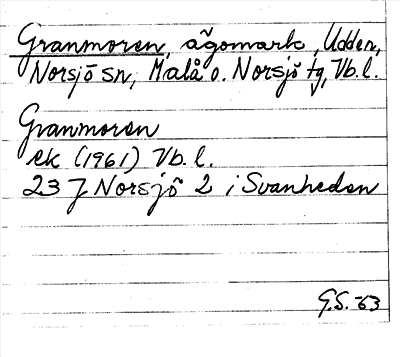 Granmoren, ägomark, Udden,
Norsjö sn, Malå o. Norsjö tg, Vb.l.
Granmoren
ek (1961) Vb.l.
23 J Norsjö 2 i Svanheden
G.S. -63